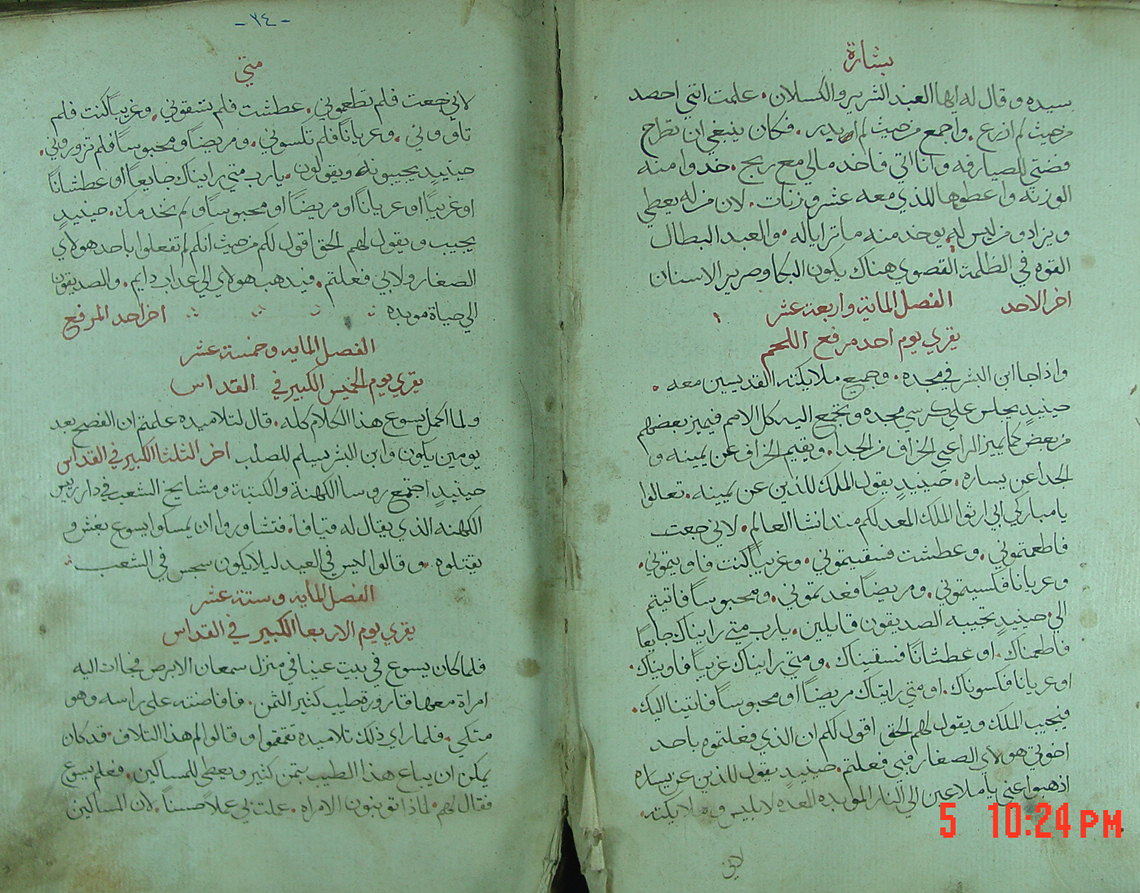 بشارة
سيده وقال له ايها العبد الشرير والكسلان. علمت انني احصد
من حيث لم ازرع. واجمع من حيث لم ابدر. فكان ينبغي ان تطرح
فضتي للصيارفه وانا اتي فاخد مالي مع ربح. خدوا منه
الوزنه واعطوها للذي معه عشر وزنات. لان من له يعطي
ويزاد ومن ليس له يوخد منه ما تراياله. والعبد البطال
القوه في الظلمة القصوي هناك يكون البكا وصرير الاسنان
اخر الاحد الفصل الماية واربعة عشر
يقري يوم احد مرفع اللحم
واذا جا ابن البشر في مجده. وجميع ملايكته القديسين معه.
حينيد يجلس علي كرسي مجده وتجتمع اليه كل الامم فيميز بعضهم
من بعض كما يميز الراعي الخراف من الجدا. ويقيم الخراف عن يمينه و
الجدا عن يساره. حينيد يقول الملك للذين عن يمينه. تعالوا
يا مباركي ابي ارثوا الملك المعد لكم مند انشا العالم. لاني جعت
فاطعمتوني. وعطشت فسقيتموني. وغريبًا كنت فاويتموني.
وعريانًا فكسيتموني. ومريضًا فعدتموني. ومحبوسًا فاتيتم
الي حينيد تجيبه الصديقون قايلين. يارب متي رايناك جايعًا
فاطعمناك. او عطشانًا فسقيناك. ومتي رايناك غريبًا فاويناك.
او عريانا فكسوناك. او متي رايناك مريضًا او محبوسًا فاتينا اليك.
فيجيب الملك ويقول لهم الحق اقول لكم ان الذي فعلتموه باحد
اخوتي هولاي الصغار فبي فعلتم. حينيد يقول للذين عن يساره
اذهبوا عني يا ملاعين الي النار الموبده المعده لابليس وملايكته.
لاني
-٢٤-
متي
لاني جعت فلم تطعموني. عطشت فلم تسقوني. وغريبًا كنت فلم
تاووني. وعريانًا فلم تكسوني. ومريضًا ومحبوسًا فلم تزوروني.
حينيد يجيبونه ويقولون. يارب متي رايناك جايعًا او عطشانًا
او غريبًا او عريانًا او مريضًا او محبوسًا ولم نخدمك. حينيد
يجيب ويقول لهم الحق اقول لكم من حيث انكم لم تفعلوا باحد هولاي
الصغار ولا بي فعلتم. فيدهب هولاي الي عداب دايم. والصديقون
الي حياة موبده اخر احد المرفع
الفصل المايه وخمسة عشر
يقري يوم الخميس الكبير في القداس
ولما اكمل يسوع هذا الكلام كله. قال لتلاميده علمتم ان الفصح بعد
يومين يكون وابن البشر يسلم للصلب اخر الثلثا الكبير في القداس
حينيد اجتمع روسا الكهنة والكتبة ومشايخ الشعب في دار ريس
الكهنه الذي يقال له قيافا. فتشاوروا ان يمسكوا يسوع بغش و
يقتلوه. وقالوا ليس في العيد ليلا يكون سجس في الشعب
الفصل المايه وستة عشر
يقري يوم الاربعا الكبير في القداس
فلما كان يسوع في بيت عنيا في منزل سمعان الابرص فجات اليه
امراة معها قارورة طيب كثير الثمن. فافاضته علي راسه وهو
متكي. فلما راي ذلك تلاميده تقمقموا وقالوا لم هذا التلاف. قد كان
يمكن ان يباع هذا الطيب بتمن كتير ويعطي للمساكين. فعلم يسوع
فقال لهم. لماذا تونبون الامراه. عملت بي عملا حسنًا. لان المساكين
5 10:24 PM